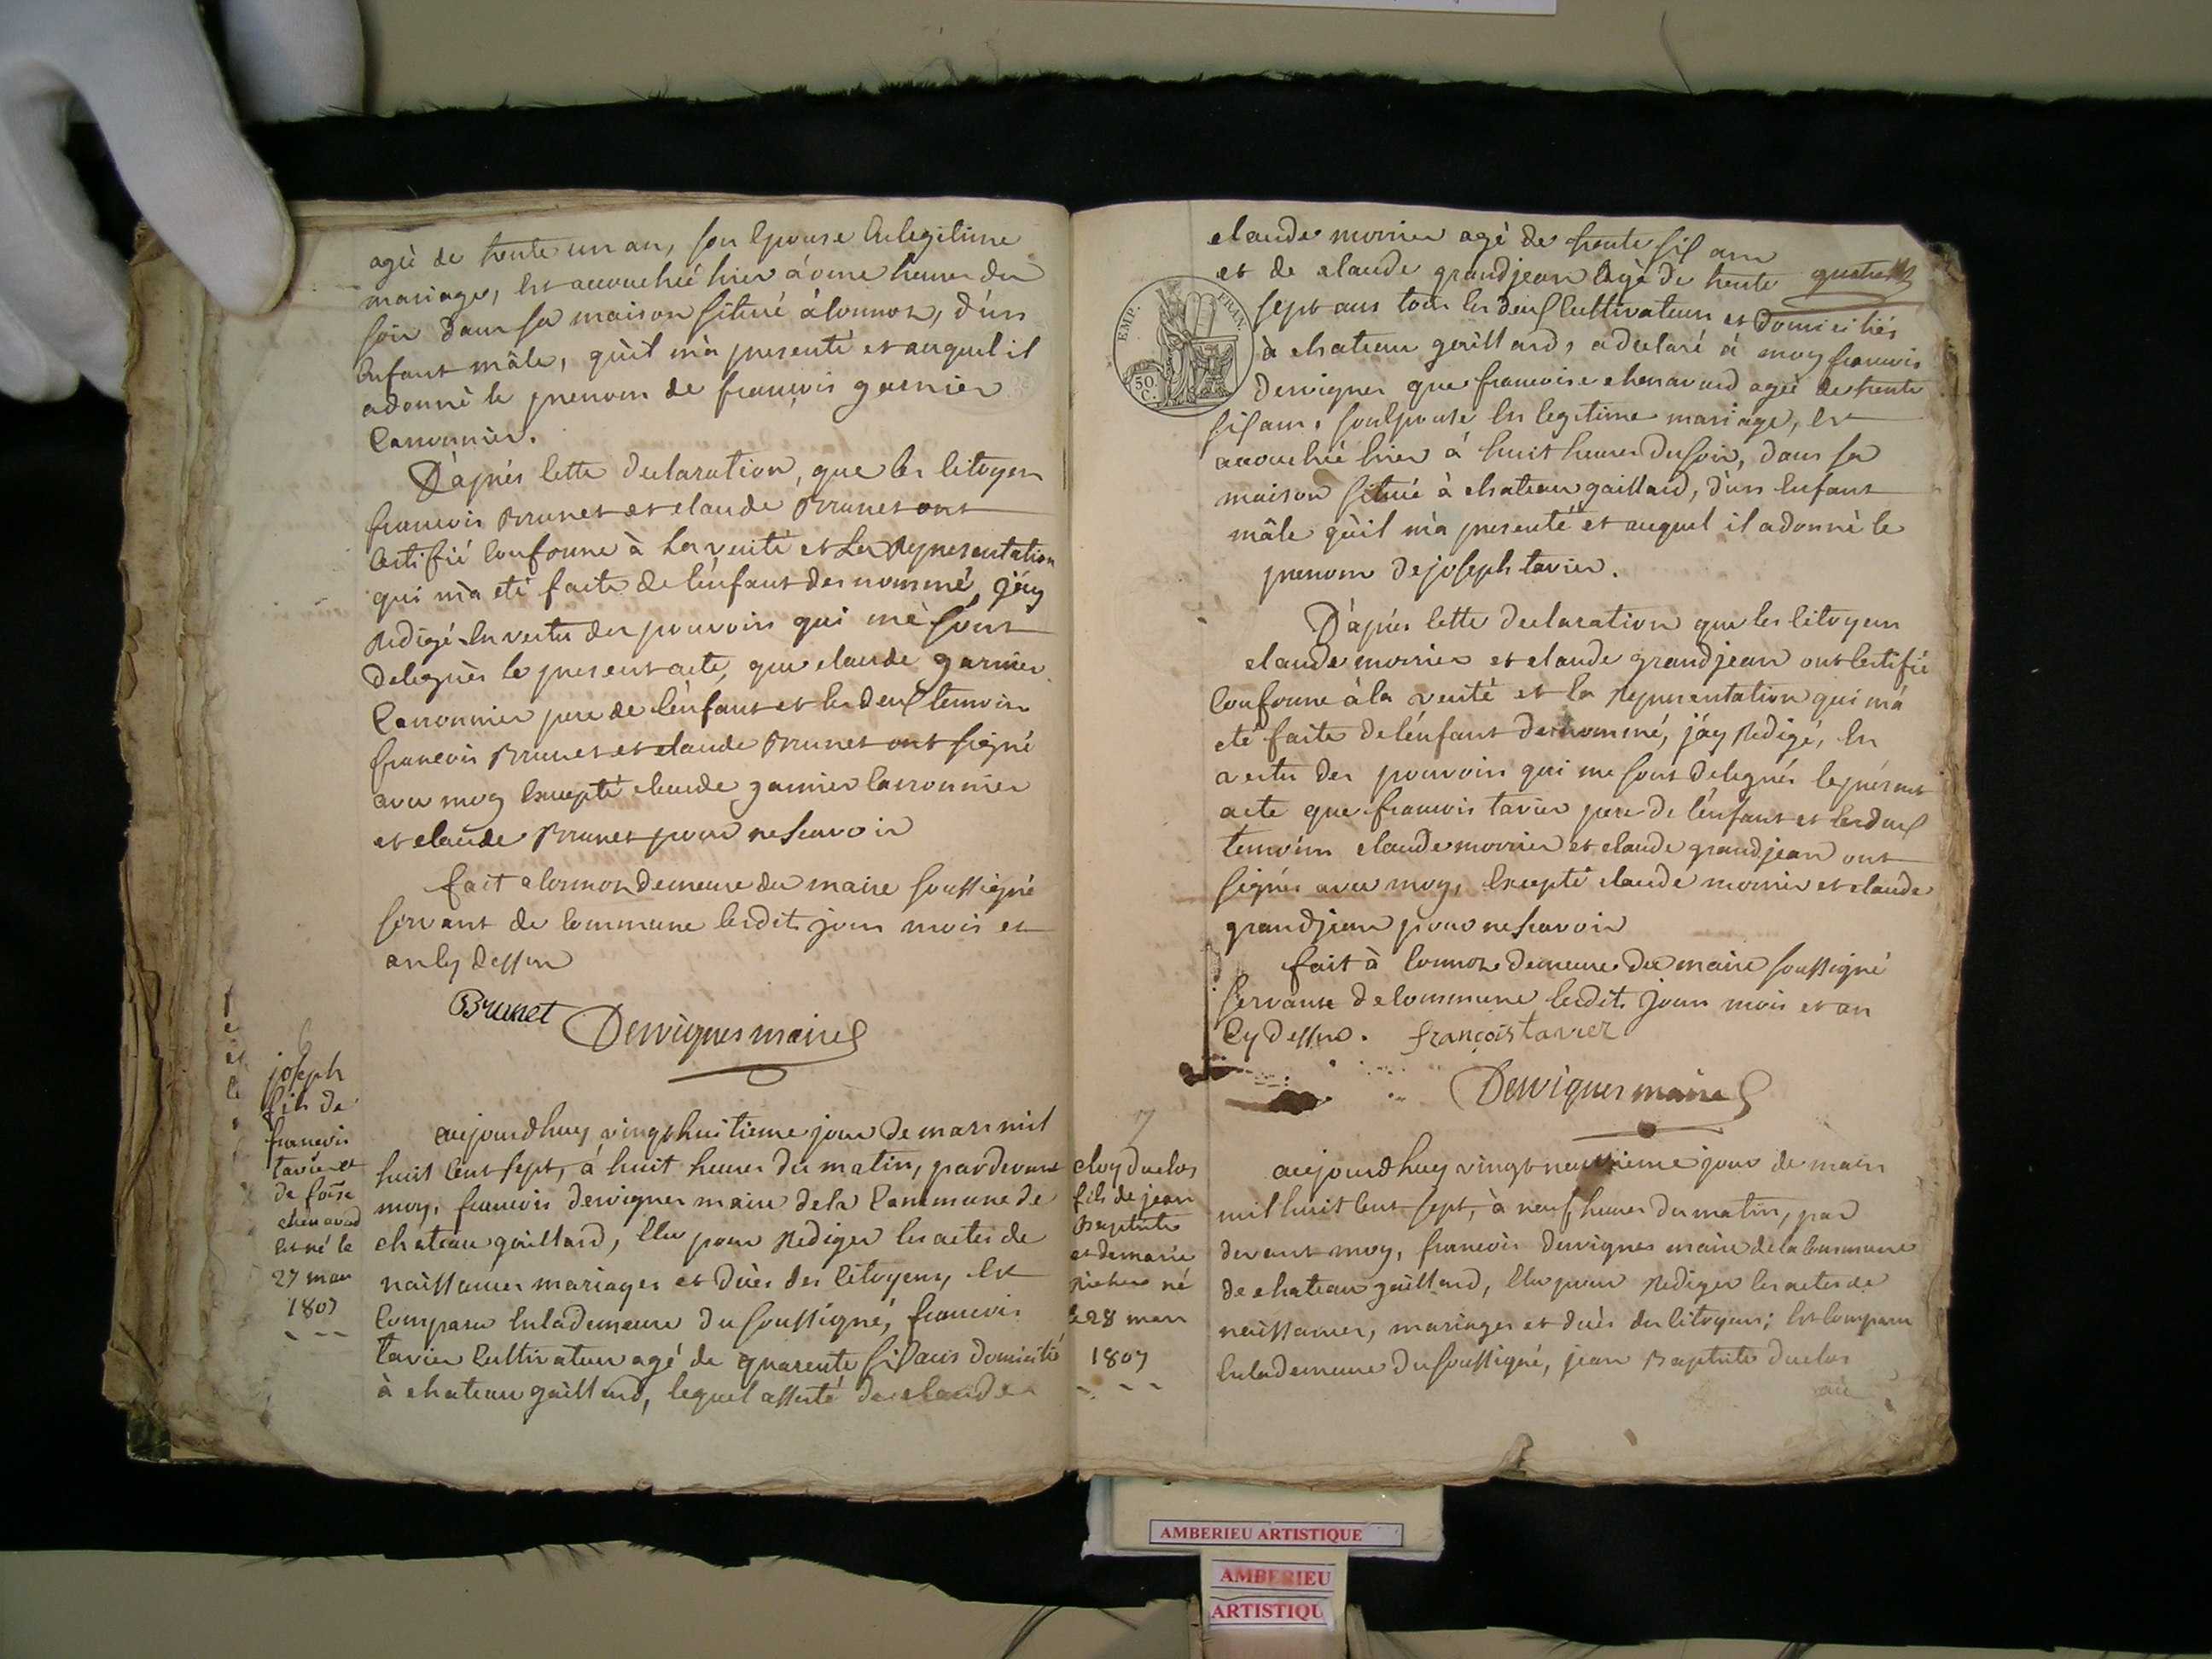 agée de trente un an, son Epouse En legitime
mariage, Est accouchée hier à onze heures du
soir dans sa maison située à Cormoz, d'un
Enfant mâle, qu'il m'a presenté et auquel il
a donné le prenom de françois garnier
Carronnier.
D'après Cette declaration, que les Citoyen
francois Brunet et claude Brunet ont
Certifié Conforme à La verité et La Representation
qui m'a eté faite de l'énfant denommé, j'éay
Redigé En vertu des pouvoirs qui mé sont
delegués le present acte, que claude garnier
Carronnier pere de l'énfant et les deux temoins
francois Brunet et claude Brunet ont signé
avec moy Excepté claude garnier Carronnier
et claude Brunet pour ne scavoir
fait a Cormoz demeure du maire soussigné
servant de Commune lesdit jour mois et
an Cy dessus
Brunet Desvignes maire
6
joseph
fils de
francois
tavier et
de foise
chenavad
Est né le
27 mars
1807
aujourdhuy vingt huitieme jour de mars mil
huit Cent sept, à huit heures du matin, pardevant
moy, francois desvignes maire de la Commune de
chateau gaillard, Elu pour Rediger les actes de
naissances mariages et décès des Citoyens, Est
Comparu En la demeure du soussigné, francois
tavier Cultivateur agé de quarente six ans domicilié
à chateau gaillard, lequel assisté de claude
claude morrier agé de trente six ans
et de claude grandjean agé de trente
sept ans tous les deux Cultivateurs et domiciliés
à chateau gaillard, a declaré à moy francois
desvignes que francoise chenavard agée de trente
six ans, son Epouse En legitime mariage, Est
accouchée hier à huit heures du soir, dans sa
maison située à chateau gaillard, d'un Enfant
mâle qu'il m'a presenté et auquel il a donné le
prenom de joseph tavier.
D'après Cette declaration que les Citoyens
claude morrier et claude grandjean ont Certifié
Conforme à la verité et la Representation qui m'a
eté faite de l'énfant denommé, j'áy Redigé, En
vertu des pouvoirs qui me sont delegués le présent
acte que francois tavier pere de l'énfant et les deux
temoins claude morrier et claude grandjean ont
signés avec moy, Excepté claude morrier et claude
grandjean pour ne scavoir
fait à Cormoz demeure du maire soussigné
servant de Commune lesdit jour mois et an
Cy dessus. françois tavier
Desvignes maire
7
eloy duclos
fils de jean
Baptiste
et de marie
né
le 28 mars
1807
aujourdhuy vingt neuvieme jour de mars
mil huit Cent sept, à neuf heures du matin, par
devant moy, francois desvignes maire de la Commune
de chateau gaillard, Elu pour Rediger les actes de
naissances, mariages et décès des Citoyens; Est Comparu
En la demeure du soussigné, jean Baptiste duclos
EMP. FRAN.
50
C.
AMBERIEU ARTISTIQUE
AMBERIEU
ARTISTIQU